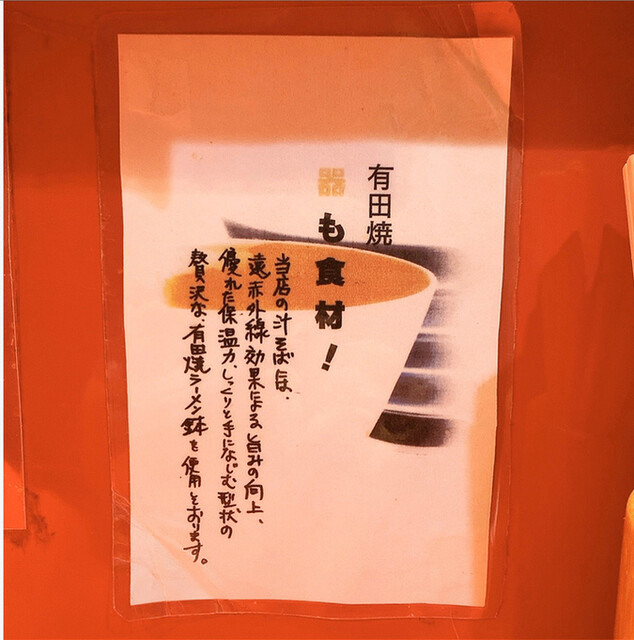 有田焼
器も食材！
当店の汁そばは、
遠赤外線効果による旨みの向上、
優れた保温力、しっくりと手になじむ型状の
贅沢な、有田焼ラーメン鉢を使用しております。